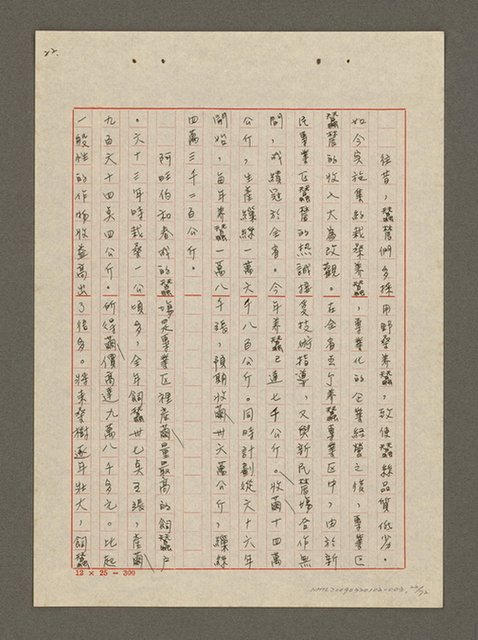 22.
往昔，蠶農們多採用野桑養蠶，致使蠶絲品質低劣。
如今实施集約栽桑養蠶，專業化的企業經營之後，專業区
蠶農的收入大為改觀。在全省五个養蠶專業区中，由於新
民專業区蠶農的热誠接受技術指導，又與新民農場合作無
間，成績冠於全省。今年養蠶已達七千公斤。收繭十四萬
公斤，生產繰絲一萬六千八百公斤。同時計劃從六十六年
開始，每年養蠶一萬八千張，預期收繭卅六萬公斤，繰絲
四萬三千二百公斤。
阿旺伯和春成的蠶場是專業区裡產繭量最高的飼蠶戶
。六十三年時栽桑一公頃多，全年飼蠶卅七点五張，產繭
九百六十四点四公斤。所得繭價高達九萬八千多元。比起
一般性的作物收益高出了很多。將來桑樹逐年壯大，飼蠶
12 × 25 = 300